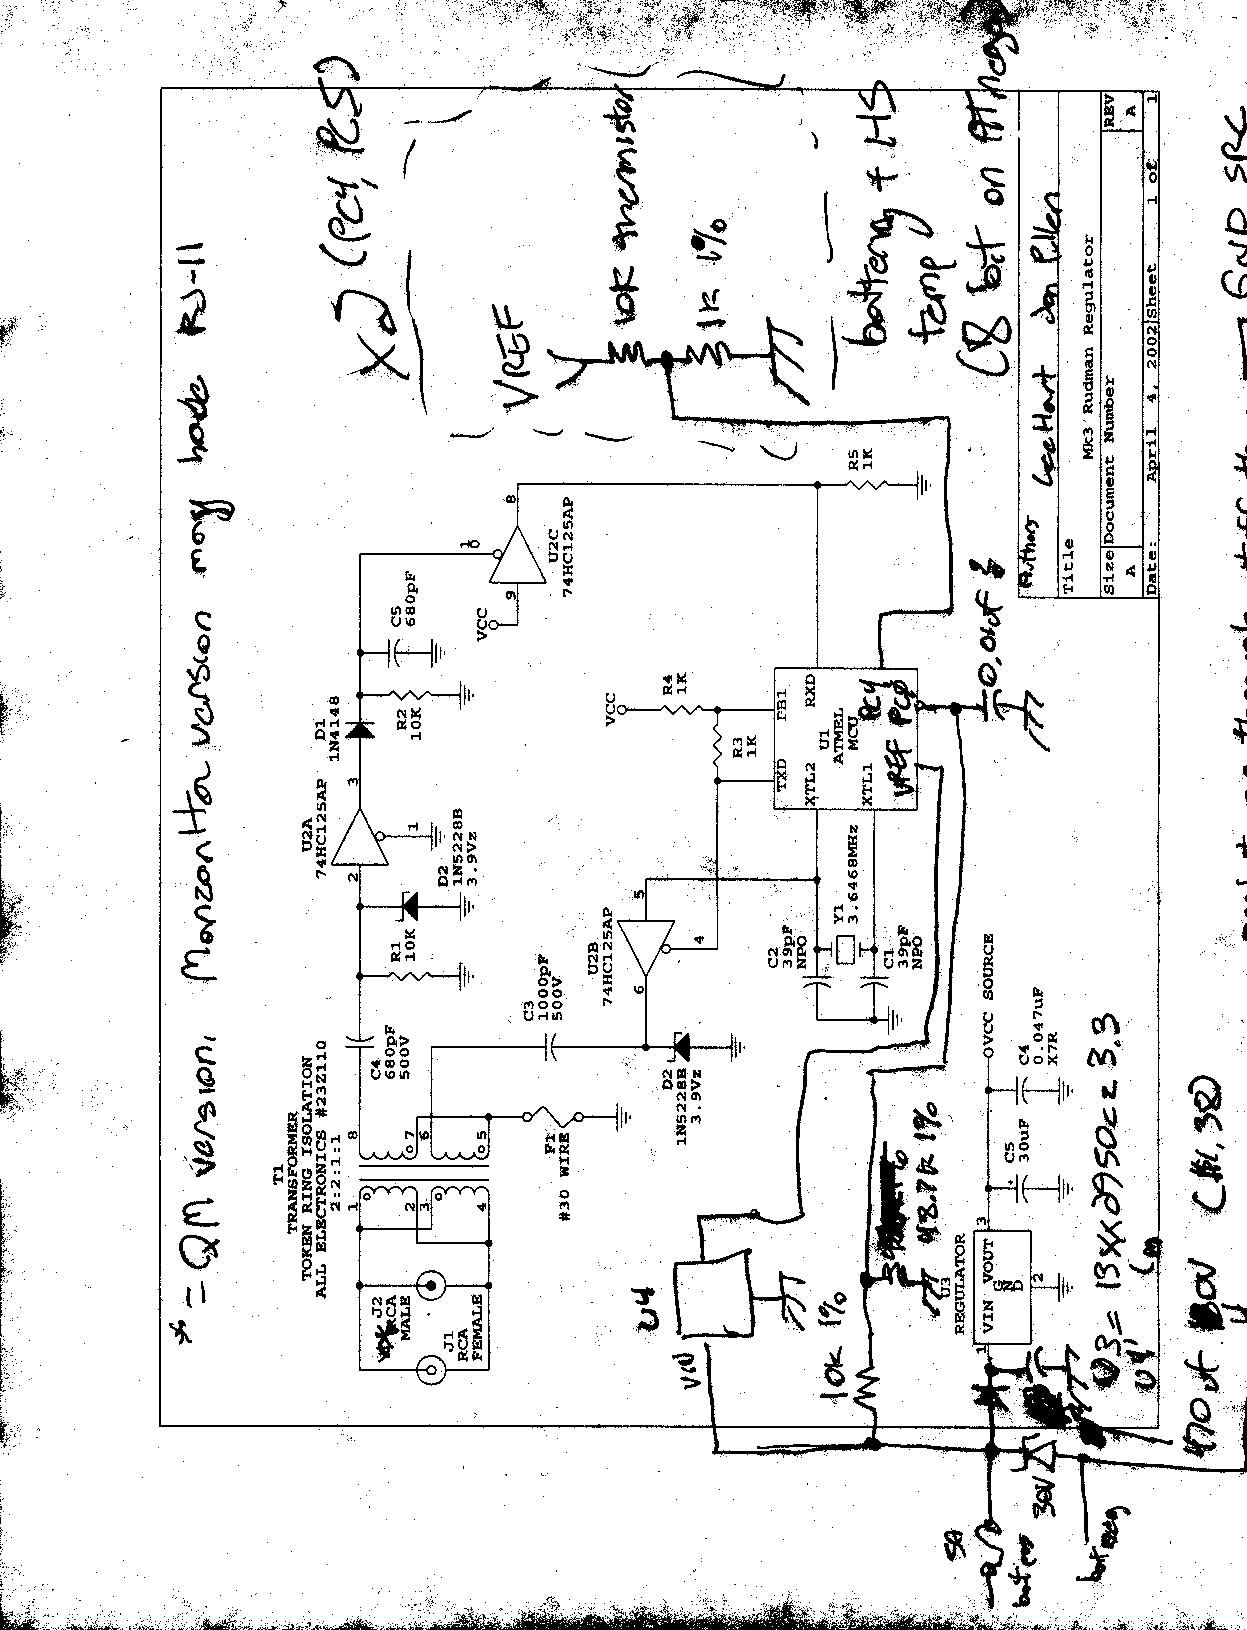 *= QM version,
may have RJ-11
X2 (PC4, PC5)
T1
TRANSFORMER
TOKEN RING ISOLATION
ALL ELECTRONICS #23Z110
2:2:1:1
1
2
3
4
8
7
6
5
J2
RCA
MALE
J1
RCA
FEMALE
C4
680pF
500V
R1
10K
D2
1N5228B
3.9Vz
U2A
74HC125AP
2
3
1
D1
1N4148
R2
10K
C5
680pF
VCC
9
8
10
U2C
74HC125AP
C3
1000pF
500V
F1
#30 WIRE
U2B
74HC125AP
6
5
4
D2
1N5228B
3.9Vz
VCC
R4
1K
R3
1K
R5
1K
PB1
RXD
TXD
XTL2
XTL1
U1
ATMEL
MCU
PC4
PC0
VREF
C2
39pF
NPO
Y1
3.6468MHz
C1
39pF
NPO
VREF
10K thermistor
1K 1%
battery + HS
temp
(8 bit on
U4
VIN
10K 1%
48.7K 1%
U3
REGULATOR
VIN VOUT
GND
1
3
2
C5
30uF
C4
0.047uF
X7R
VCC SOURCE
30V
5A
bat pos
bat neg
470uf
GND SRC
Authors Lee Hart
Title
Mk3 Rudman Regulator
Size Document Number REV
A A
Date: April 4, 2002 Sheet 1 of 1